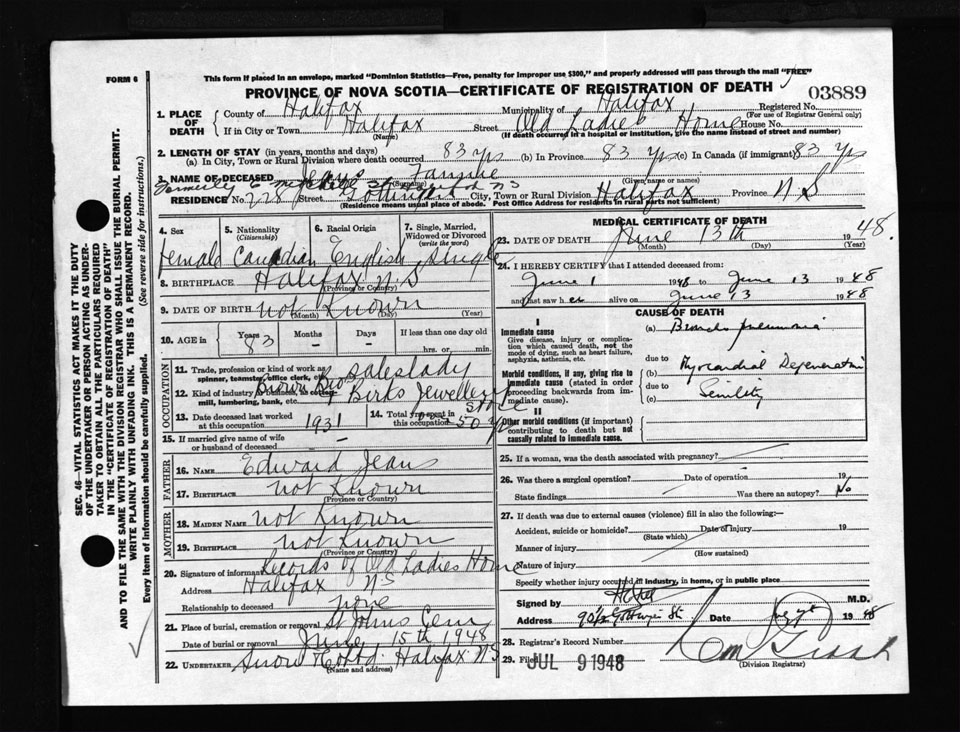 This form if placed in an envelope, marked "Dominion Statistics—Free, penalty for improper use $300," and properly addressed will pass through the mail "FREE"
FORM 6
PROVINCE OF NOVA SCOTIA—CERTIFICATE OF REGISTRATION OF DEATH
03889
1. PLACE OF DEATH
County of Halifax Municipality of Halifax Registered No.
(For use of Registrar General only)
If in City or Town Halifax Street Old Ladies Home House No.
(Name) (If death occurred in a hospital or institution, give the name instead of street and number)
2. LENGTH OF STAY (in years, months and days)
(a) In City, Town or Rural Division where death occurred 83 yrs (b) In Province 83 yrs (c) In Canada (if immigrant) 83 yrs
3. NAME OF DECEASED Jeans Fannie
(Surname) (Given name or names)
Formerly 6
RESIDENCE No. 228 Street Gottingen City, Town or Rural Division Halifax Province N S
(Residence means usual place of abode. Post Office Address for residents in rural parts not sufficient)
4. Sex
5. Nationality (Citizenship)
6. Racial Origin
7. Single, Married, Widowed or Divorced (write the word)
female Canadian English Single
8. BIRTHPLACE Halifax N.S
(Province or Country)
9. DATE OF BIRTH not Known
(Month) (Day) (Year)
10. AGE in Years 83 Months – Days – If less than one day old
hrs. or min.
OCCUPATION
11. Trade, profession or kind of work as spinner, teamster, office clerk, etc. saleslady
12. Kind of industry or business, as cotton mill, lumbering, bank, etc. Birks Jewellery Store
13. Date deceased last worked at this occupation 1931
14. Total yrs. spent in this occupation 50 yrs
15. If married give name of wife or husband of deceased –
FATHER
16. NAME Edward Jeans
17. BIRTHPLACE not Known
(Province or Country)
MOTHER
18. MAIDEN NAME not Known
19. BIRTHPLACE not Known
(Province or Country)
20. Signature of informant Records of Old Ladies Home
Address Halifax NS
Relationship to deceased none
21. Place of burial, cremation or removal St Johns Cem
Date of burial or removal June 15th 1948
22. UNDERTAKER Snow & Co Ltd. Halifax NS
(Name and address)
MEDICAL CERTIFICATE OF DEATH
23. DATE OF DEATH June 13th 1948.
(Month) (Day) (Year)
24. I HEREBY CERTIFY that I attended deceased from:
June 1 1948 to June 13 1948
and last saw her alive on June 13 1948
CAUSE OF DEATH
I
Immediate cause
Give disease, injury or complication which caused death, not the mode of dying, such as heart failure, asphyxia, asthenia, etc.
(a) Broncho pneumonia
due to
Morbid conditions, if any, giving rise to immediate cause (stated in order proceeding backwards from immediate cause).
(b) Myocardial Degeneration
due to
(c) Senility
II
Other morbid conditions (if important) contributing to death but not causally related to immediate cause.
25. If a woman, was the death associated with pregnancy?
26. Was there a surgical operation? Date of operation 19
State findings Was there an autopsy? No
27. If death was due to external causes (violence) fill in also the following:—
Accident, suicide or homicide? Date of injury 19
(State which)
Manner of injury
(How sustained)
Nature of injury
Specify whether injury occurred in industry, in home, or in public place
Signed by M.D.
Address Date 1948
28. Registrar's Record Number
29. Filed JUL 9 1948
(Division Registrar)
SEC. 46—VITAL STATISTICS ACT MAKES IT THE DUTY
OF THE UNDERTAKER OR PERSON ACTING AS UNDERTAKER TO OBTAIN ALL THE PARTICULARS REQUIRED
IN THE "CERTIFICATE OF REGISTRATION OF DEATH"
AND TO FILE THE SAME WITH THE DIVISION REGISTRAR WHO SHALL ISSUE THE BURIAL PERMIT.
WRITE PLAINLY WITH UNFADING INK. THIS IS A PERMANENT RECORD.
Every item of Information should be carefully supplied. (See reverse side for instructions.)